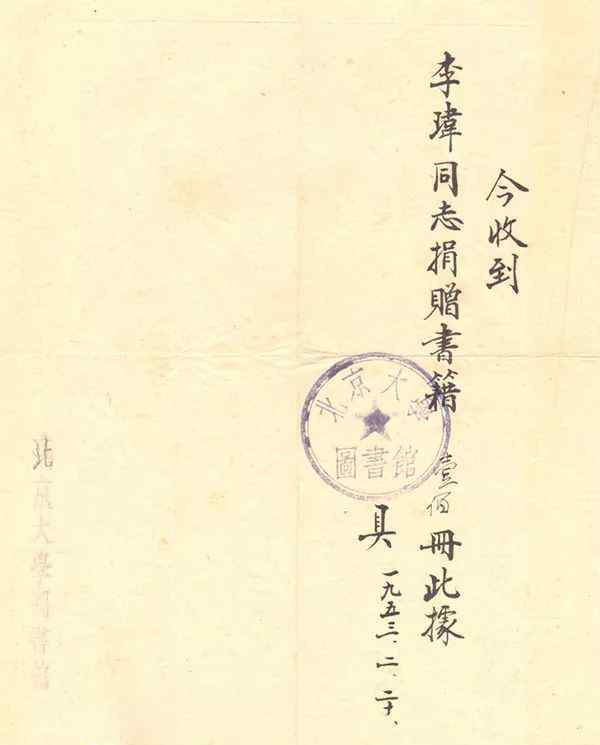 今收到
李瑋同志捐贈書籍壹佰冊此據
具
一九五三.二.二十.
北京大學
圖書館
北京大學圖書館